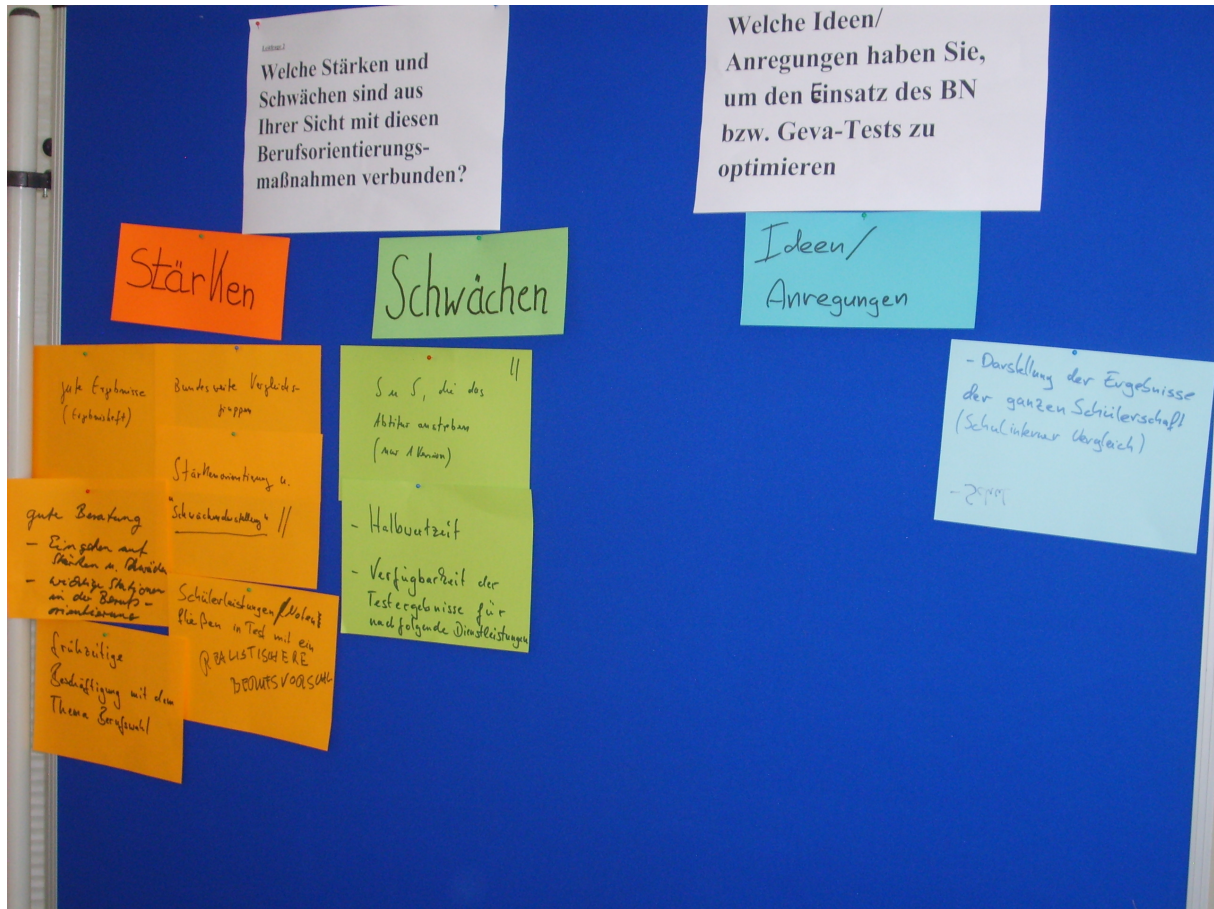 Welche Stärken und
Schwächen sind aus
Ihrer Sicht mit diesen
Berufsorientierungs-
maßnahmen verbunden?
Welche Ideen/
Anregungen haben Sie,
um den Einsatz des BN
bzw. Geva-Tests zu
optimieren
Stärken
Schwächen
Ideen/
Anregungen
gute Ergebnisse
(Ergebnisheft)
Bundesweite Vergleichs-
gruppen
Stärkenorientierung u.
"Schwächendarstellung" //
gute Beratung
- Eingehen auf
Stärken u. Schwächen
- wichtige Stationen
in der Berufs-
orientierung
Schülerleistungen/Noten
fließen in Test mit ein
REALISTISCHERE
BERUFSVORSCHL
frühzeitige
Beschäftigung mit dem
Thema Berufswahl
//
SuS, die das
Abitur anstreben
(nur 1 Version)
- Halbwertzeit
- Verfügbarkeit der
Testergebnisse für
nachfolgende Dienstleistungen
- Darstellung der Ergebnisse
der ganzen Schülerschaft
(Schulinterner Vergleich)